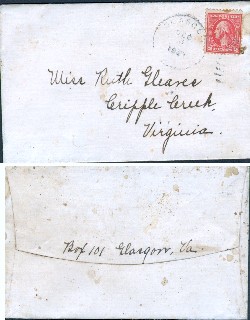 Miss Ruth Gleaves
Cripple Creek,
Virginia.
Box 101 Glasgow, Va.